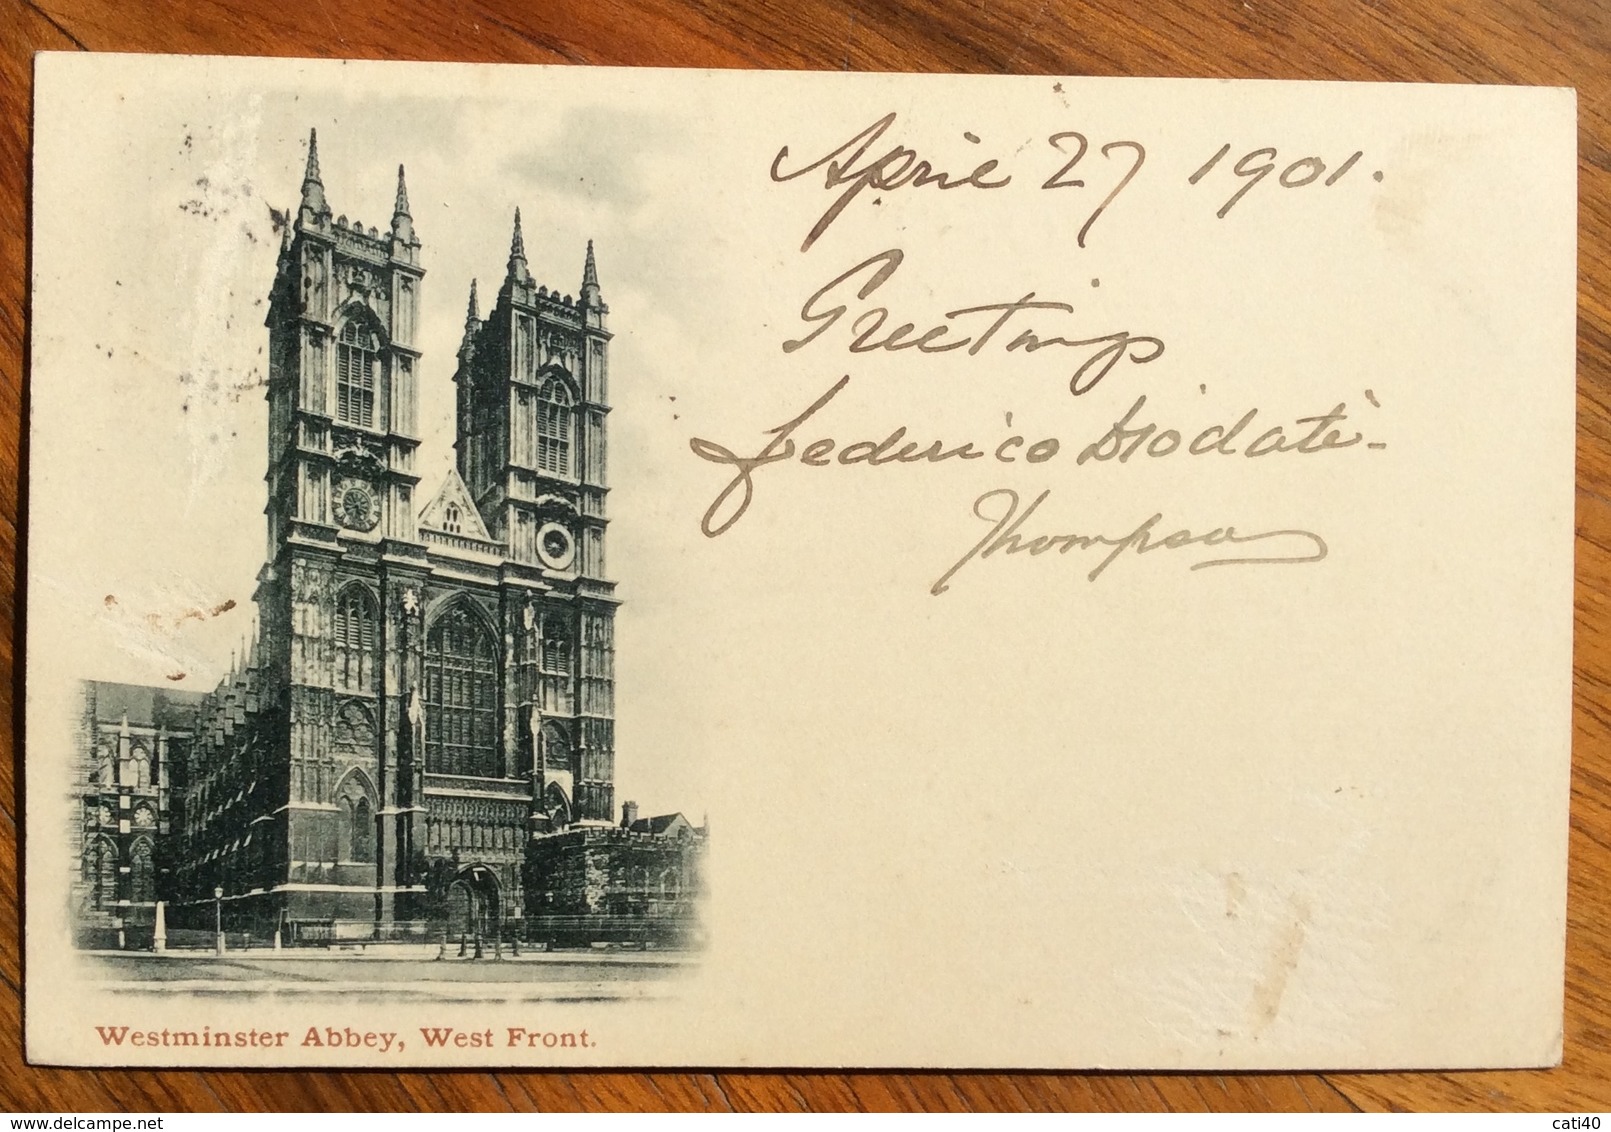 April 27 1901.
Greetings
Federico Diodati-
Thompson
Westminster Abbey, West Front.
delcampe.net
cati40